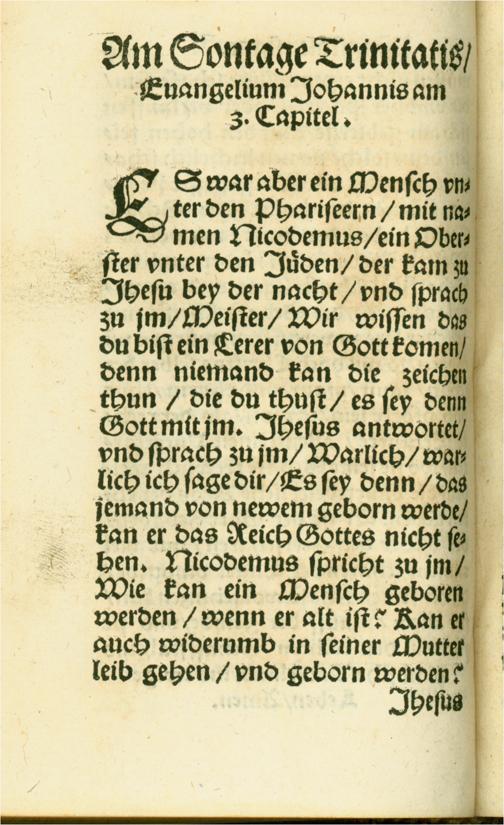 Am Sontage Trinitatis/
Euangelium Johannis am
3. Capitel.
ES war aber ein Mensch vn⸗
ter den Phariseern / mit na⸗
men Nicodemus/ein Ober⸗
ster vnter den Jüden/ der kam zu
Jhesu bey der nacht / vnd sprach
zu jm/Meister/ Wir wissen das
du bist ein Lerer von Gott komen/
denn niemand kan die zeichen
thun / die du thust/ es sey denn
Gott mit jm. Jhesus antwortet/
vnd sprach zu jm/ Warlich/ war⸗
lich ich sage dir/Es sey denn / das
jemand von newem geborn werde/
kan er das Reich Gottes nicht se⸗
hen. Nicodemus spricht zu jm/
Wie kan ein Mensch geboren
werden / wenn er alt ist? Kan er
auch widerumb in seiner Mutter
leib gehen / vnd geborn werden?
Jhesus